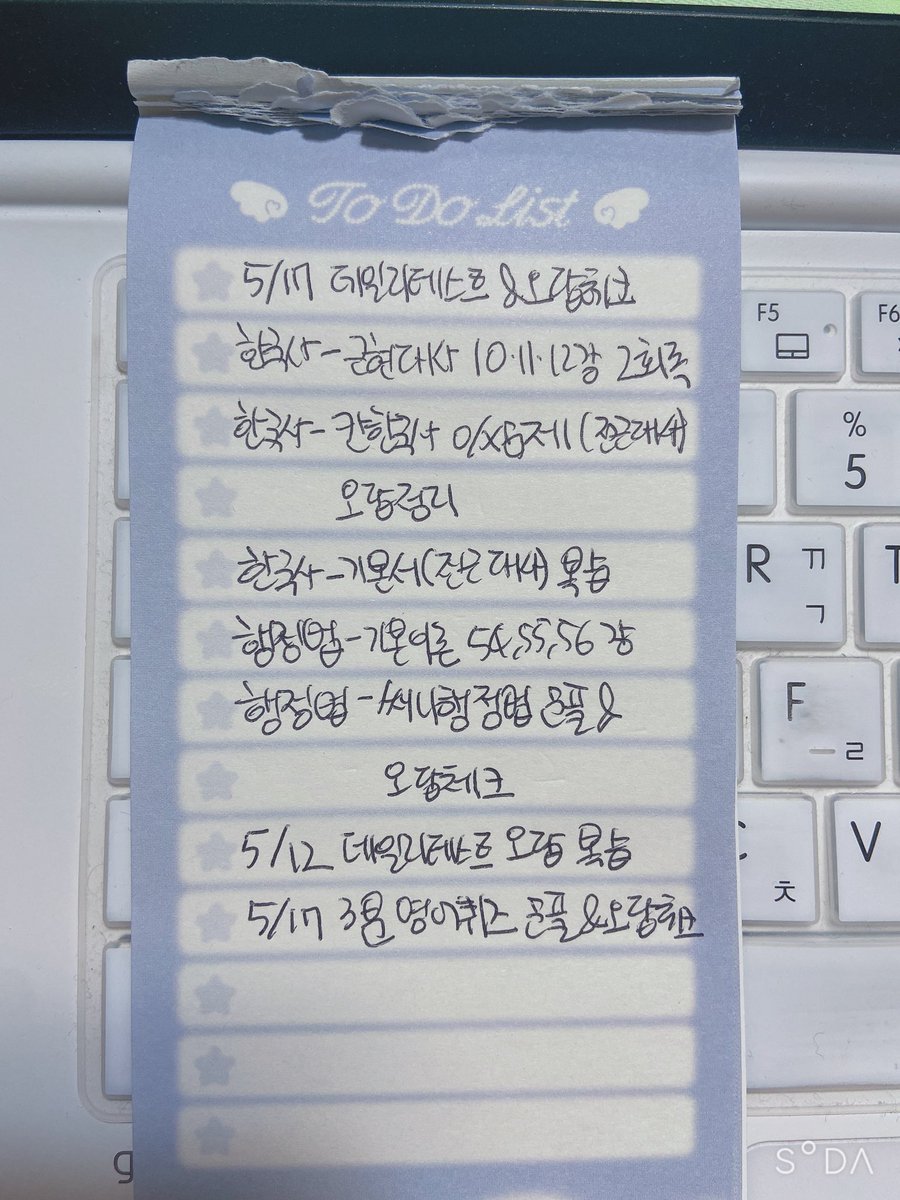 To Do List
5/17 데일리테스트 & 오답체크
한국사 - 근현대사 10.11.12강 2회독
한국사 - 한국사 O/X문제 (전근대사)
오답정리
한국사 - 기본서(전근대사) 복습
행정법 - 기본이론 54,55,56강
행정법 - 써니행정법 문풀 &
오답체크
5/12 데일리테스트 오답 복습
5/17 3월 영어퀴즈 문풀 & 오답체크
F5
F6
%
5
R ㄲ
ㄱ
T
F
ㄹ
C
V
ㅊ
g
SODA